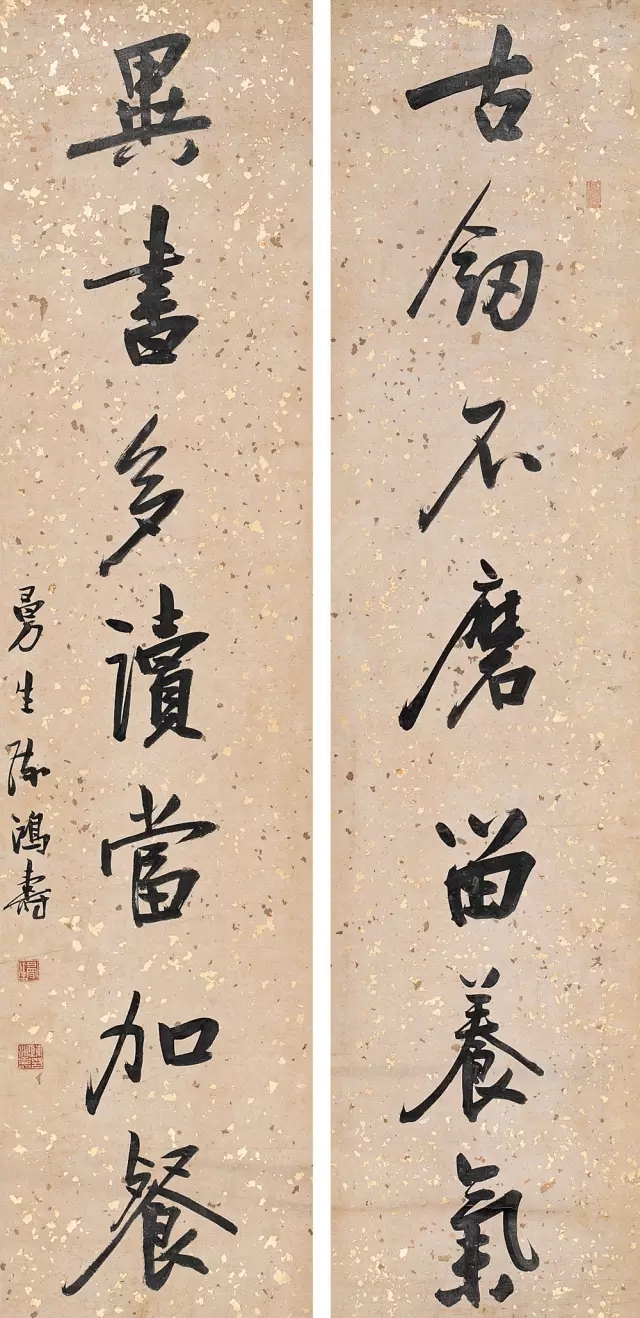 古劒不磨留養氣
異書多讀當加餐
曼生陳鴻壽